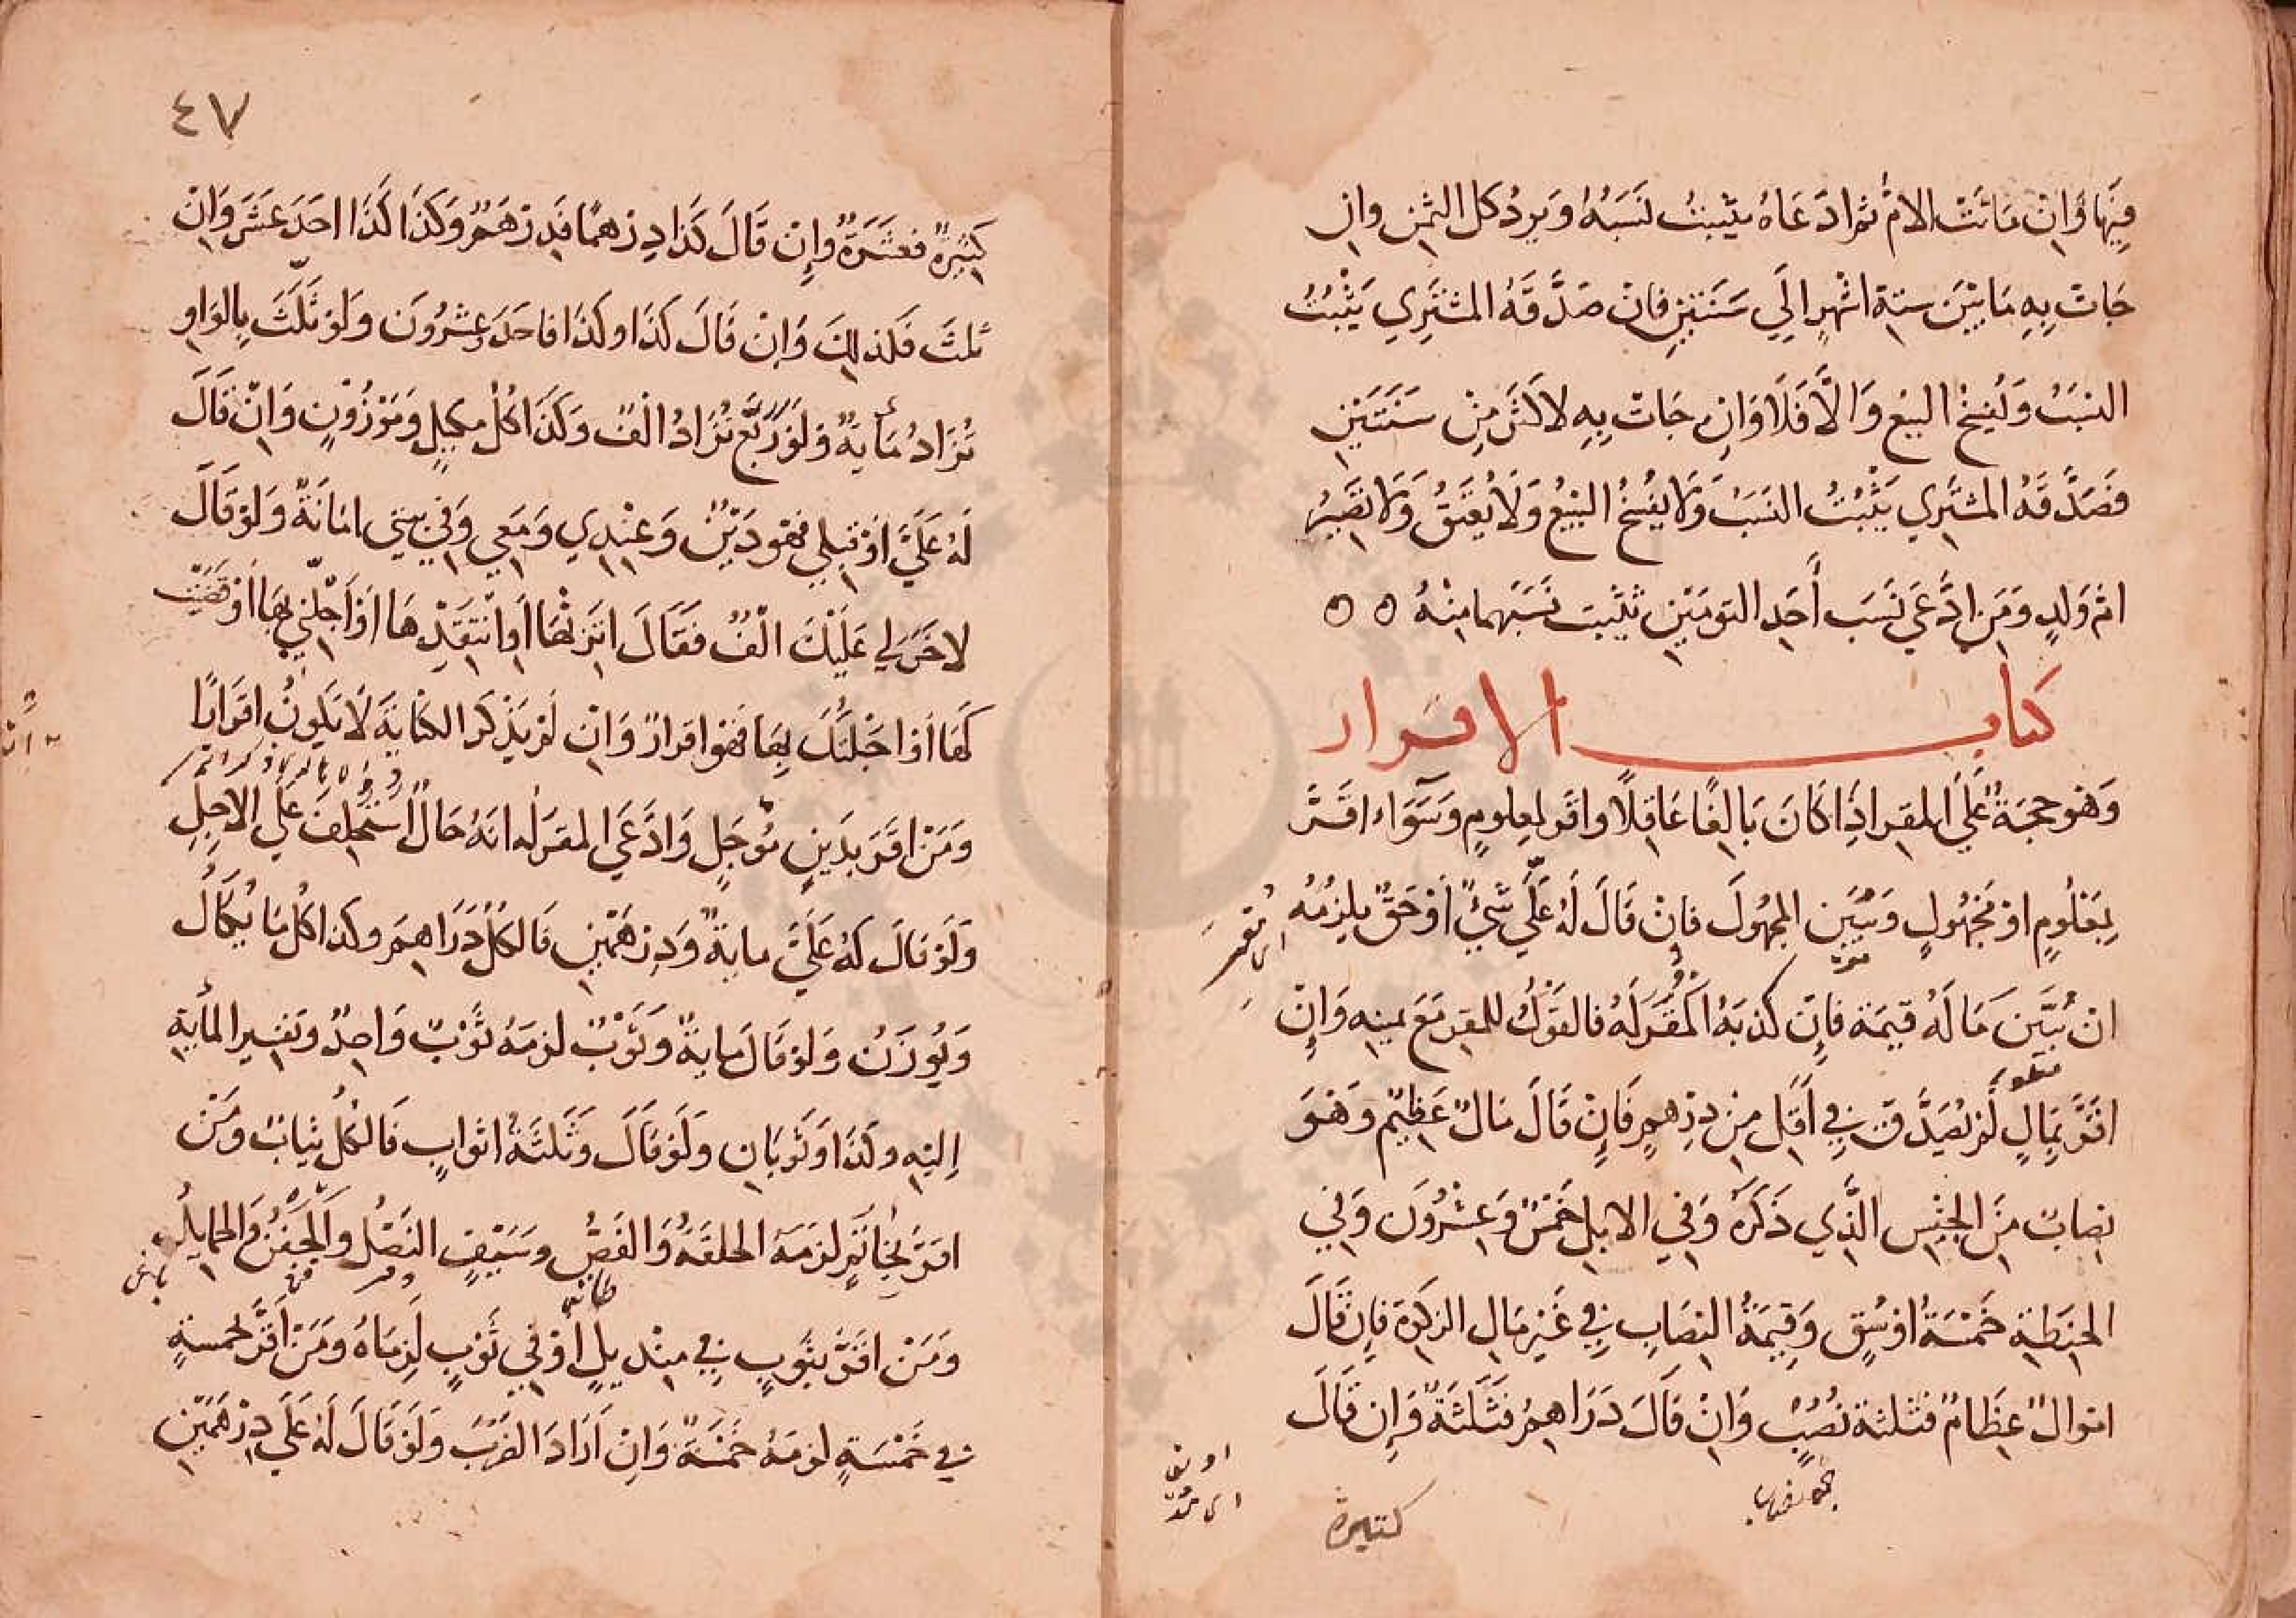 فِيهَا وَانْ مَاتَتْ الامُ ثم ادَعَاهُ يثبت نَسَبُهُ وَيرد كل الثمن وان
جَاتْ بِهِ مَا بَيْنَ ستة اشهر الَي سَنَتَينِ فان صَدَّقَهُ المشتَرِي يَثْبُتُ
النسَبُ وَيُفْسَخُ البيع وَالَّا فَلَا وَانِ جَاتْ بِهِ لاكثَر مِنْ سَنَتَيْنِ
فَصَدَّقَهُ المشتَرِي يَثْبُتُ النسَبُ وَلَا يفُسَخُ البَيْعُ وَلَا يُعتَقُ وَلَا تصَيرُ
امّ وَلدٍ وَمَن ادَّعَي نَسَب أَحَدِ التومَيْنِ يثبت نَسَبهما مِنْهُ ٥ ٥
كتاب الاقرار
وَهو حجَةٌ عَلَي المقِر اذَا كَانَ بَالِغًا عَاقِلًا واقَر لمعلومٍ وَسَوَاء اقَرَّ
بِمَعْلُومٍ اوْ مَجْهُولٍ وَيُبَين المجهُولَ فانْ قَالَ لَهُ عَلَّي شَيءٌ اَوْ حَقٌ يلزمُهُ
انْ يُبَيَنَ مَا لَهُ قيمَة فَانِ كذبَهُ المُقَرُ لَهُ فالقَوْلُ للمقِر مَعَ يمينِه وَانِ
اقَرَّ بِمَالٍ لَمْ يُصَدَّق فِي اَقَل مِن دِرْهمٍ فَانِ قَالَ مَالٌ عَظِيمٌ وَهُوَ
نِصابٌ مِنَ الجنْسِ الذَّي ذَكَرَهُ وَفي الابل خَمْسٌ وَعِشْرُونَ وَفي
الحِنطَةِ خَمْسَةُ اوْسُقٍ وَقِيمَةُ النِصَابِ فِي غَيْرِ مَالِ الزكَوةِ فَانِ قَالَ
امْوالٌ عِظَامٌ فثلثة نصُبٍ وَانْ قَالَ دَرَاهِمُ فثَلَثَةٌ وَانِ قَالَ
كثيرة
٤٧
كَثِيرَةٌ فعَشَرَةٌ وَانْ قَالَ كَذَا دِرْهمًا فَدِرْهَمٌ وَكذَا كَذَا احَدَ عَشَرَ وَانْ
ثلثَ فَكَذلِكَ وَانْ قَالَ كَذَا وكذَا فَاحَدَ وَعِشْرُونَ وَلَوْ ثَلَّثَ بِالوَاوِ
تُزَادُ مَايةٌ وَلَوْ رَبَّعَ تُزَادُ الْفٌ وَكَذَا كُلُ مَكِيلٍ وَمَوْزُوْنٍ وَانْ قَالَ
لهُ عَلَيَّ اوْ قِبَلِي فَهُو دَيْنٌ وَعنْدِي وَمَعِي وَفي بيتي امَانَةٌ وَلوْ قَالَ
لاخَر لِي عَلَيْكَ الْفٌ فَقَالَ اتَزِنْهَا اَوْ انْتَقِدْهَا اَوْ أَجِّلْني بِهَا أَوْ قَضَيتُ
كَهَا اَوْ احَلتُكَ بِهَا فَهُو اقرارٌ وَانْ لَمْ يَذْكر الكِنَايَةَ لَا يَكُونُ اقرَارًا
وَمَنْ اقَرَ بدَينٍ مُوَجَلٍ وَادَّعَي المقَر لهُ انَهُ حَالٌ اُسْتُحلِفَ عَلَي الاجَلِ
وَلَوْ قَالَ لَهُ عَلَيَّ مايةٌ وَدِرْهَمَينِ فَالكُلُ دَرَاهِمَ وكذا كُلُ مَا يُكَالُ
وَيُوزَنُ وَلَوْ قَالَ مايةٌ وَثَوْبٌ لزِمَهُ ثَوْبٌ وَاحِدٌ وَتفسِير المايَةِ
اِليْهِ وكَذَا وَثَوْبَانِ وَلَوْ قَالَ وَثَلثَةُ اثوابٍ فَالكل ثيابٌ وَمَنْ
اقرَّ بخَاتَمٍ لزمَهُ الحلقَةُ وَالفَصُّ وسَيْفٍ النَصْلُ وَالجَفْنُ وَالحمايلُ
وَمَنْ اقَرَّ بثَوبٍ فِي مِنْديلٍ اَوْ فِي ثَوْبٍ لَزِمَاهُ وَمَنْ اَقَرَّ لخمسةٍ
فِي خَمْسَةٍ لزمَهُ خَمْسَةٌ وَانْ اَرَادَ الضَرْبَ وَلَوْ قَالَ لَهُ عَلَي دِرْهَمَيْنِ